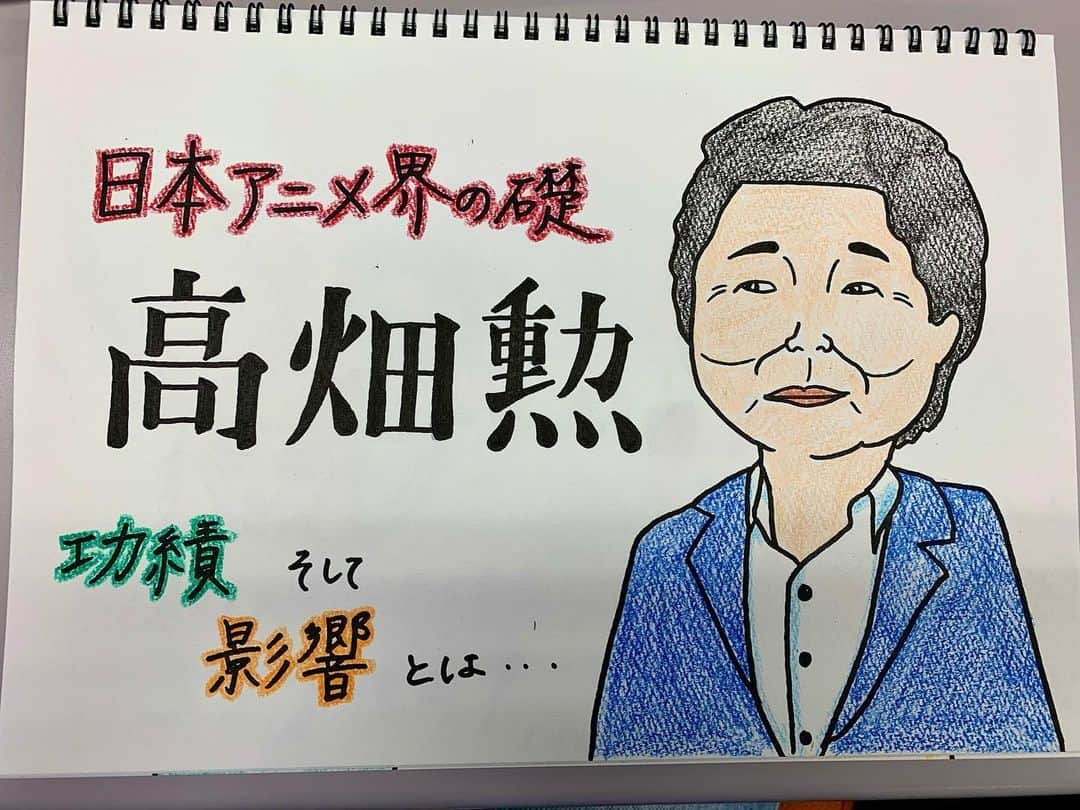 日本アニメ界の礎
高畑勲
功績 そして
影響 とは...